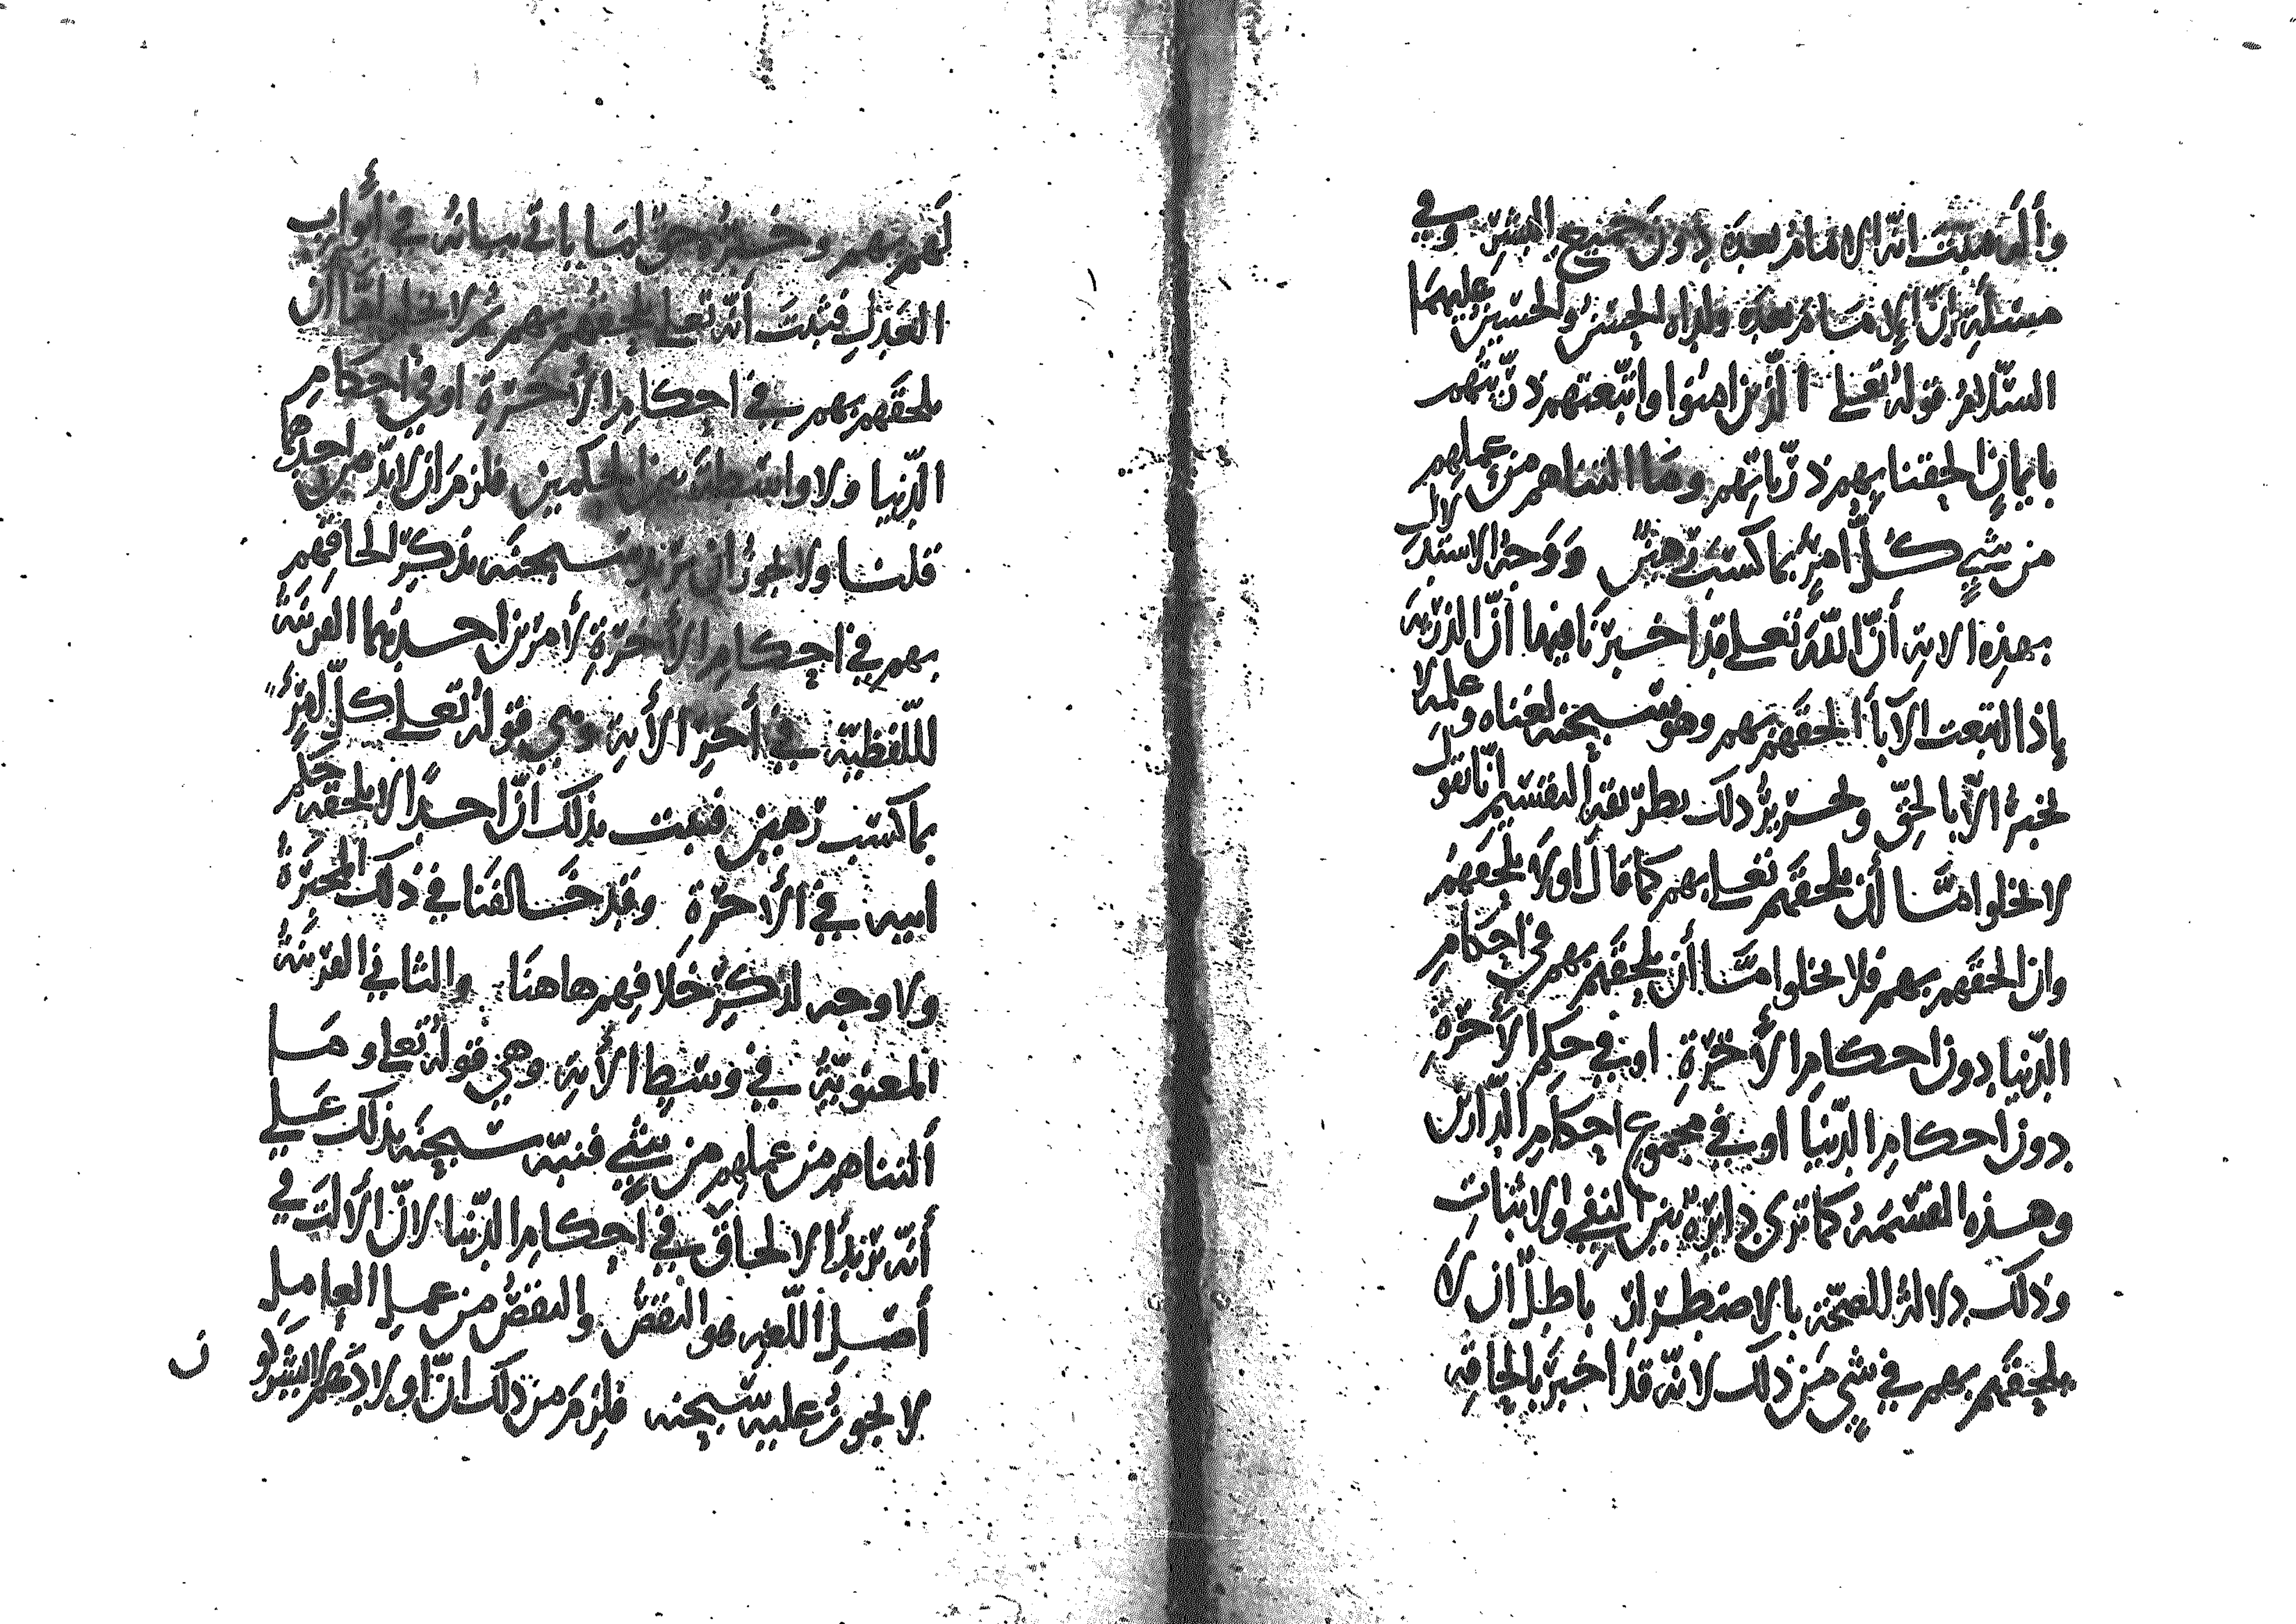 وأله فثبت انه الامام بعده دون جميع البشر وفي
مسئلة انّ الامام بعده ولداه الحسن والحسين عليهما
السّلام قوله تعلى الّذين امنوا واتّبعتهم ذرّيتهم
بايمان الحقنا بهم ذرّياتهم وما التناهم من عملهم
من شيءٍ كلّ امرئٍ بما كسب رهين ووجه الاستدلال
بهذه الاية أنّ اللّه تعلى قد اخبرنا فيها انّ الذرّية
اذا اتبعت الآبأ الحقهم بهم وهو سبحنه لغناه وعلمه لا
يخبر الّا بالحقّ وتحرير ذلك بطريقة التقسيم انّا نقول
لا يخلوا امّا أن يلحقهم تعلى بهم كما قال اولا يلحقهم
وان الحقهم بهم فلا يخلوا امّا أن يلحقهم بهم في احكام
الدّنيا دون احكام الأخرة او في حكم الأخرة
دون احكام الدّنيا او في مجموع احكام الدّارين
وهذه القسمة كما ترى دايرة بين النفي والاثبات
وذلك دلالة الصحّة بالاضطرار باطل ان لا
يلحقهم بهم في شي من ذلك لانّه قد اخبر بالحاقه
لهم بهم وخبره حقّ لما ياتي بيانه في أبواب
العدل فثبت أنّه تعلى يلحقهم بهم ثم لا يخلوا امّا ان
يلحقهم بهم في احكام الأخرة او في احكام
الدّنيا ولا واسطة بين الحكمين فلزم ان لا بدّ من احدهما
قلنا ولا يجوز ان يريد سبحنه بذكر الحاقهم
بهم في احكام الأخرة لامرين احدهما القرينة
اللّفظيّة في أخر الأية وهي قوله تعلى كلّ امرئٍ
بما كسب رهين فثبت بذلك انّ احدًا لا يلحقه حكم
ابيه في الأخرة وقد خالفنا في ذلك المجبرة
ولا وجه لذكر خلافهم هاهنا والثاني القرينة
المعنويّة في وسط الأية وهي قوله تعلى وما
ألتناهم من عملهم من شيءٍ فنبّه سبحنه بذلك على
أنّه يريد الالحاق في احكام الدّنيا لانّ الألت في
أصل اللّغة هو النقص والنقص من عمل العامل
لا يجوز عليه سبحنه فلزم من ذلك انّ اولادهم